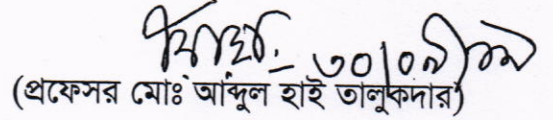 ৩০|০৯|১৯
(প্রফেসর মোঃ আব্দুল হাই তালুকদার)